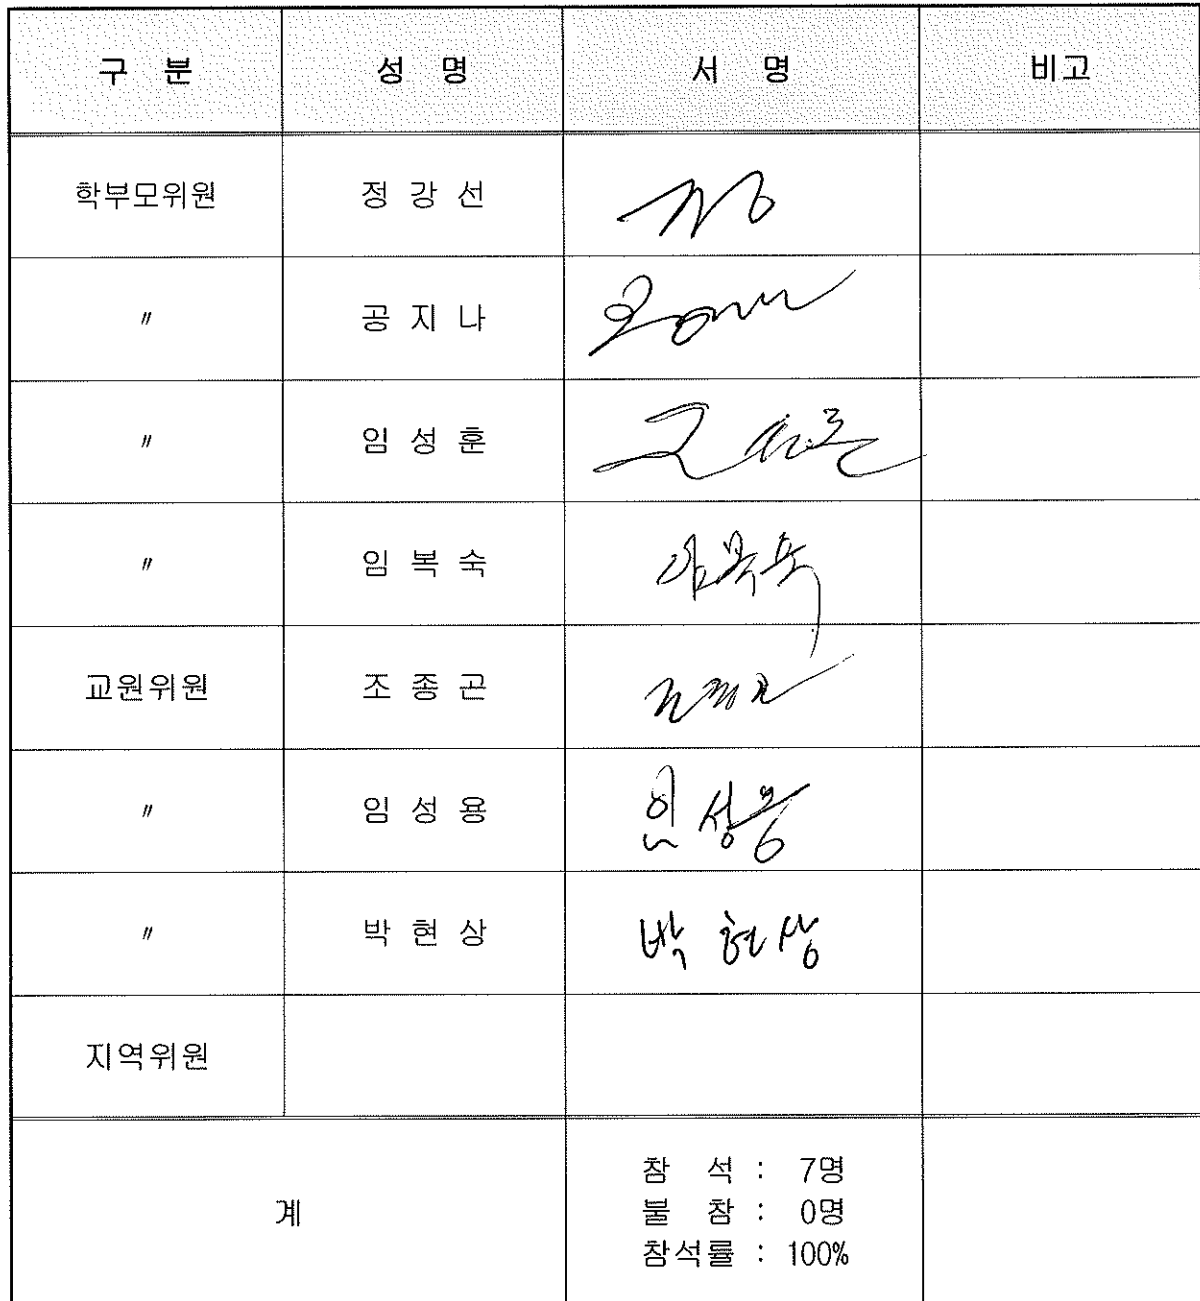 구 분 성 명 서 명 비고
학부모위원 정 강 선
〃 공 지 나
〃 임 성 훈
〃 임 복 숙 임복숙
교원위원 조 종 곤
〃 임 성 용 임성용
〃 박 현 상 박 현상
지역위원
계
참 석 : 7명
불 참 : 0명
참석률 : 100%